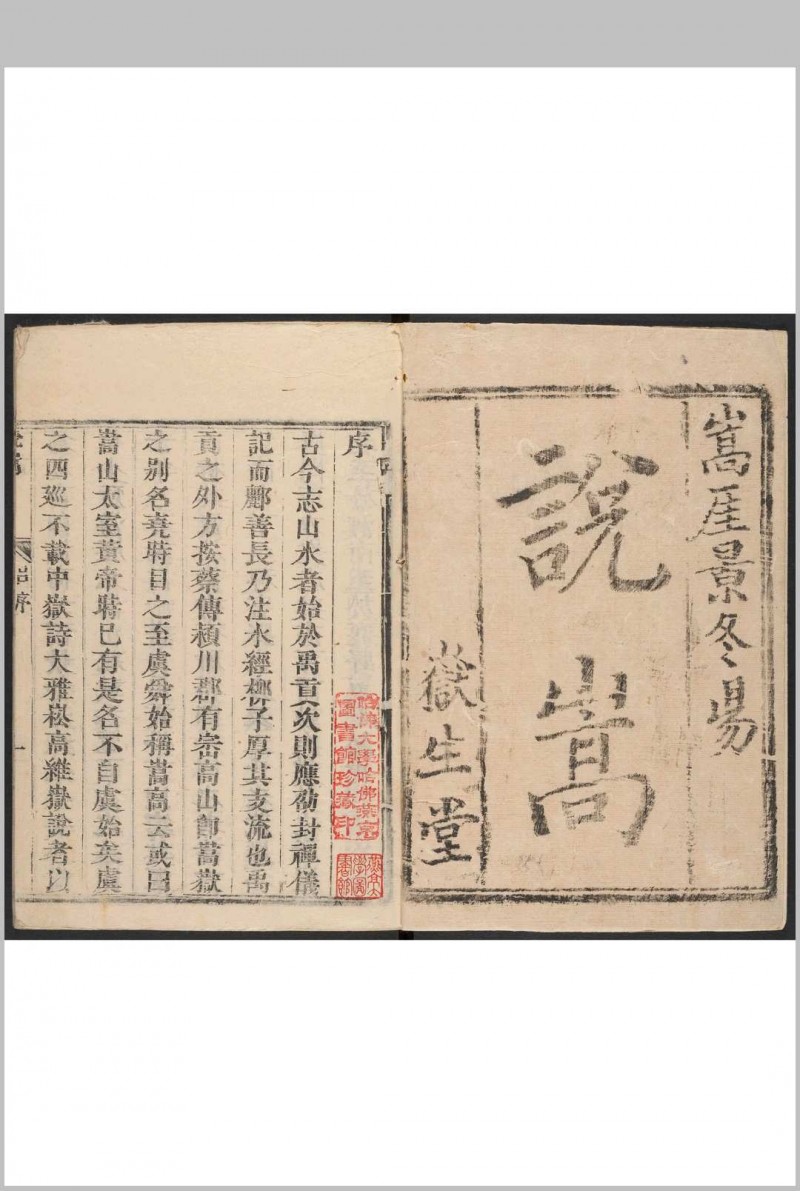 嵩厓景冬暘
說嵩
嶽生堂
序
古今志山水者始於禹貢次則應劭封禪儀
記而酈善長乃注水經栁子厚其支流也禹
貢之外方按蔡傳潁川郡有崈高山卽嵩嶽
之别名堯時目之至虞舜始稱嵩高云或曰
嵩山太室黃帝時已有是名不自虞始矣虞
之四廵不載中嶽詩大雅崧高維嶽說者以
序
一
哈佛大學哈佛燕京
圖書館珍藏印